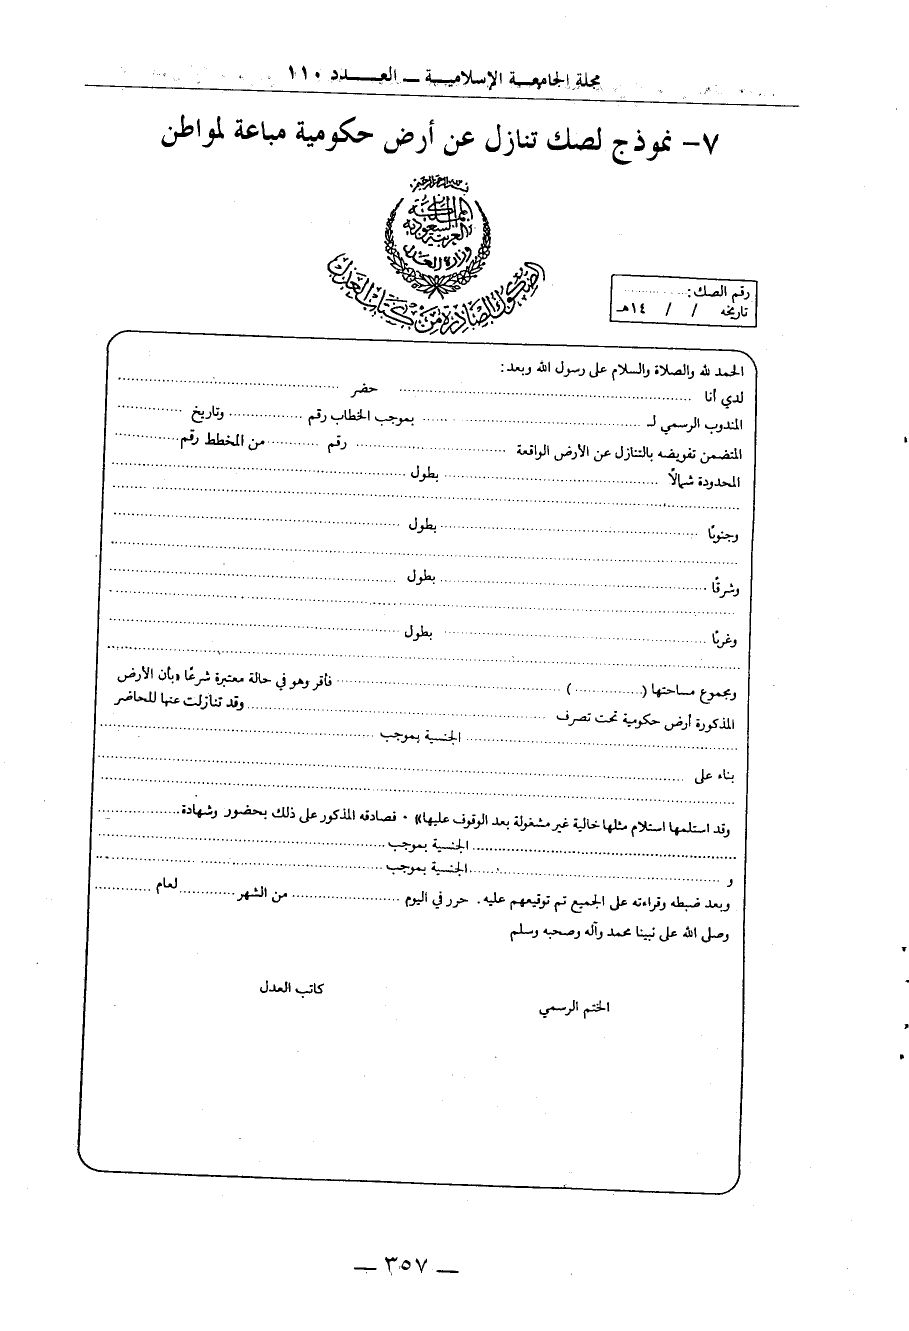 مجلة الجامعة الإسلامية ــ العـــدد ١١٠
٧– نموذج لصك تنازل عن أرض حكومية مباعة لمواطن
بسم الله الرحمن الرحيم
المملكة
العربية السعودية
وزارة العدل
الصكوك الصادرة من كتاب العدل
رقم الصك: ..............
تاريخه / / ١٤هـ
الحمد لله والصلاة والسلام على رسول الله وبعد:
لدي أنا .............................. حضر ..............................
المندوب الرسمي لـ .............................. بموجب الخطاب رقم .............. وتاريخ ..............
المتضمن تفويضه بالتنازل عن الأرض الواقعة .............................. رقم .............. من المخطط رقم ..............
المحدودة شمالاً .............................. بطول ..............................
وجنوبًا .............................. بطول ..............................
وشرقًا .............................. بطول ..............................
وغربًا .............................. بطول ..............................
وبمجموع مساحتها (..............) .............................. فأقر وهو في حالة معتبرة شرعًا «بأن الأرض
المذكورة أرض حكومية تحت تصرف .............................. وقد تنازلت عنها للحاضر
.............................. الجنسية بموجب ..............................
بناء على ..............................
وقد استلمها استلام مثلها خالية غير مشغولة بعد الوقوف عليها» ٠ فصادقه المذكور على ذلك بحضور وشهادة..............
.............................. الجنسية بموجب ..............................
و .............................. الجنسية بموجب ..............................
وبعد ضبطه وقراءته على الجميع تم توقيعهم عليه. حرر في اليوم .............. من الشهر .............. لعام ..............
وصلى الله على نبينا محمد وآله وصحبه وسلم
كاتب العدل
الختم الرسمي
— ٣٥٧ —